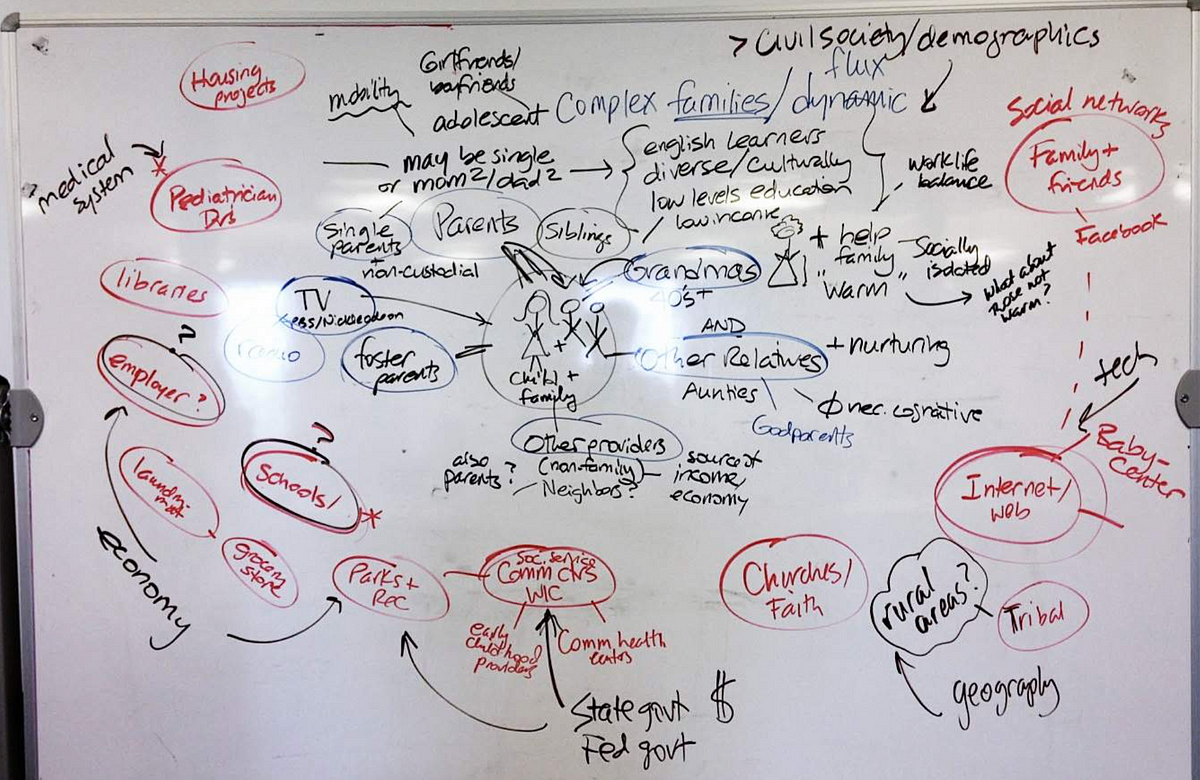 > Civil society/demographics
flux
Complex families/dynamic
Housing
projects
mobility
Girlfriends/
boyfriends
adolescent
Social networks
Family +
friends
Facebook
medical
system
*
Pediatrician
Drs
may be single
or mom²/dad²
english learners
diverse/culturally
low levels education
low income
work life
balance
Single
parents
+
non-custodial
Parents
Siblings
+ help
family
"warm"
Socially
isolated
What about
those not
warm?
libraries
TV
PBS/Nickelodeon
radio
Grandmas
40's+
AND
Other Relatives
+ nurturing
Aunties
Godparents
Ø nec. cognitive
?
employer?
foster
parents
child +
family
+
tech
Baby-
Center
Internet/
web
Other providers
(non-family)
Neighbors?
also
parents?
source of
income/
economy
?
Schools/
*
laundry-
mat
grocery
store
economy
Parks +
Rec
Soc. service
Comm ctrs
WIC
early
childhood
providers
Comm, health
centers
Churches/
Faith
rural
areas?
Tribal
geography
State govt $
Fed govt